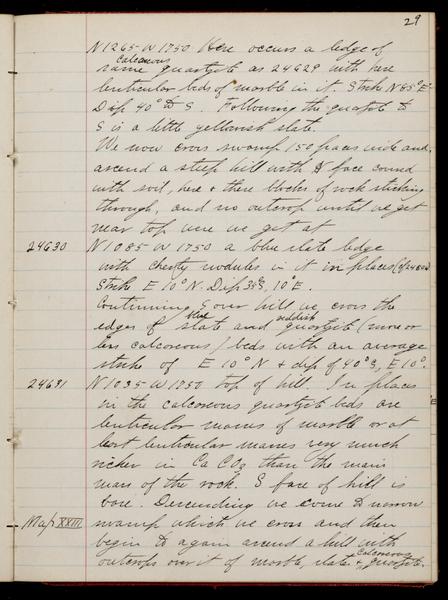 29
N 1265 - W 1750 Here occurs a ledge of
same calcareous quartzite as 24629 with here
lenticular beds of marble in it. Strike N 85° E
Dip 40° to S. Following the quartzite to
S is a little yellowish slate.
We now cross swamp, 150 paces wide and,
ascend a steep hill with N face covered
with soil, here & there blocks of rock sticking
through, and no outcrop until we get
near top were we get at
24630 N 1085 - W 1750 a blue slate ledge
with cherty nodules in it in places
Strike E 10° N. Dip 35° S, 10 E.
Continuing S over hill we cross the
edges of blue slate and reddish quartzite (more or
less calcareous) beds with an average
strike of E 10° N & dip of 40° S, E 10°.
24631 N 1035 - W 1750 top of hill. In places
in the calcareous quartzite beds are
lenticular masses of marble or at
least lenticular masses very much
richer in Ca CO3 than the main
mass of the rock. S face of hill is
bare. Descending we come to narrow
Map XXIII swamp which we cross and then
begin to again ascend a hill with
outcrops over it of marble, slate & calcareous quartzite.